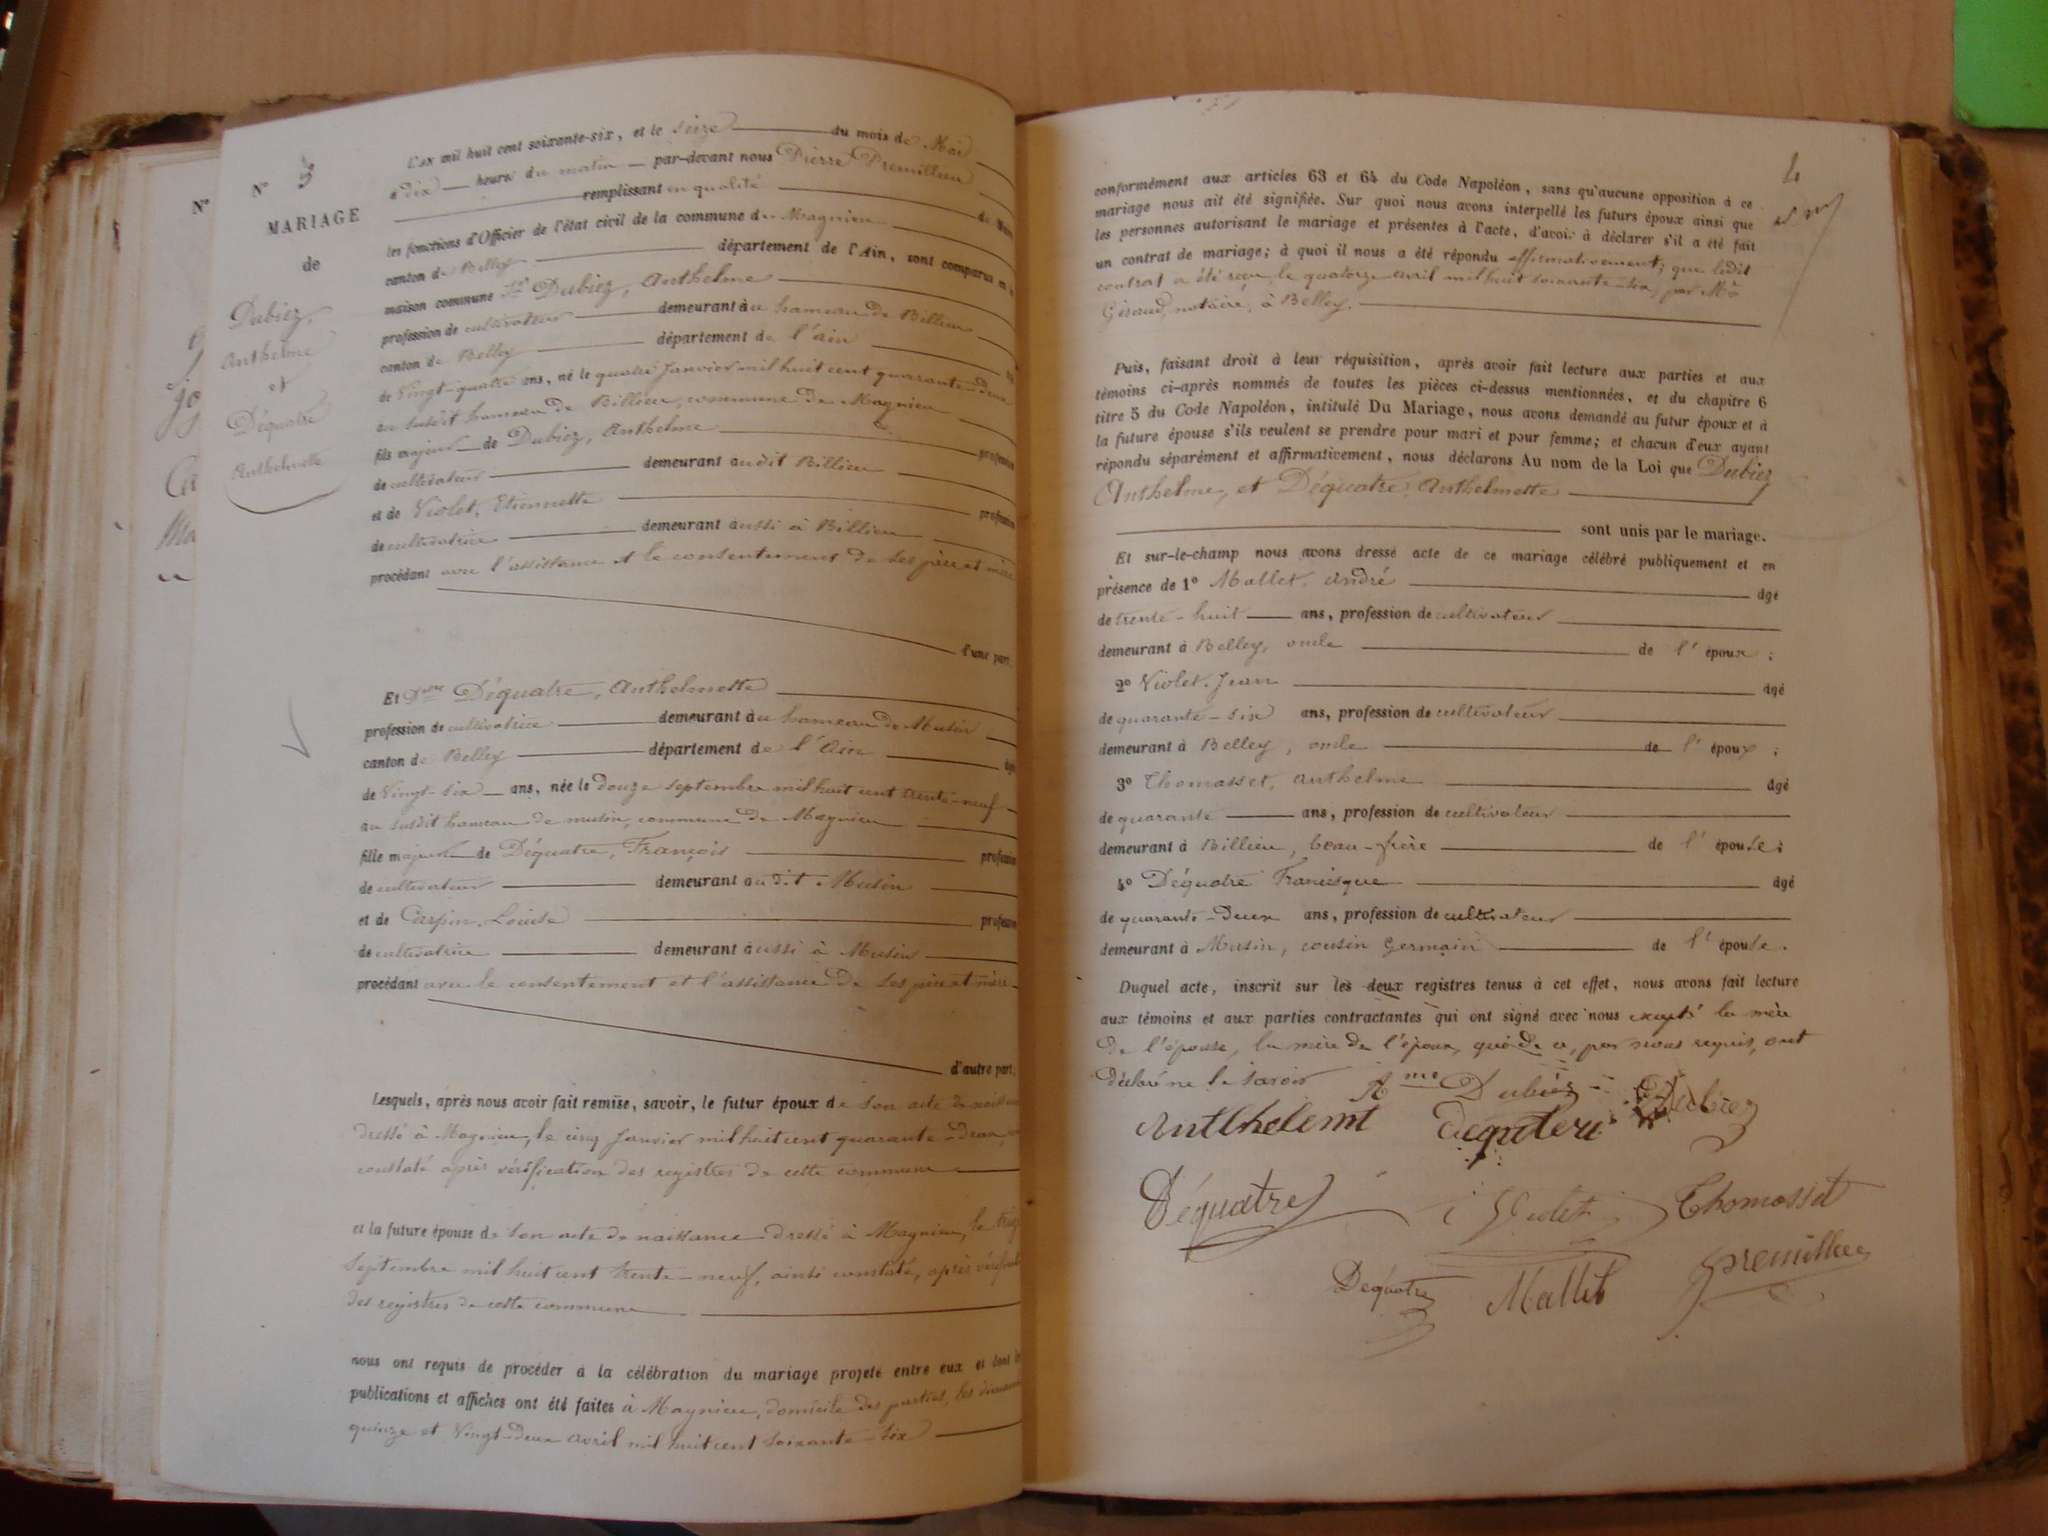 N° 3
MARIAGE
de
Dubiez,
Anthelme
et
Déquatre
Anthelmette
L'an mil huit cent soixante-six, et le seize du mois de Mai
à dix heures du matin par-devant nous Pierre Premillieu
remplissant en qualité de Maire
les fonctions d'Officier de l'état civil de la commune de Magnieu
canton de Belley département de l'Ain, sont comparus en la
maison commune Sr Dubiez, Anthelme
profession de cultivateur demeurant au hameau de Billieu
canton de Belley département de l'ain
de vingt-quatre ans, né le quatre Janvier mil huit cent quarante-deux
au susdit hameau de Billieu, commune de Magnieu
fils majeur de Dubiez, Anthelme profession
de cultivateur demeurant audit Billieu
et de Violet, Etiennette profession
de cultivatrice demeurant aussi à Billieu
procédant avec l'assistance et le consentement de ses père et mère
d'une part.
Et Delle Déquatre, Anthelmette
profession de cultivatrice demeurant au hameau de Musin
canton de Belley département de l'Ain âgée
de vingt-six ans, née le douze septembre mil huit cent trente-neuf
au susdit hameau de musin, commune de Magnieu
fille majeure de Déquatre, François profession
de cultivateur demeurant audit Musin
et de Carpin, Louise profession
de cultivatrice demeurant aussi à Musin
procédant avec le consentement et l'assistance de ses père et mère
d'autre part.
Lesquels, après nous avoir fait remise, savoir, le futur époux de son acte de naissance
dressé à Magnieu, le cinq Janvier mil huit cent quarante-deux,
constaté après vérification des registres de cette commune
et la future épouse de son acte de naissance dressé à Magnieu, le treize
Septembre mil huit cent trente-neuf, ainsi constaté, après vérification
des registres de cette commune
nous ont requis de procéder à la célébration du mariage projeté entre eux et dont les
publications et affiches ont été faites à Magnieu, domicile des parties, les dimanches
quinze et vingt-deux avril mil huit cent soixante-six
4
conformément aux articles 63 et 64 du Code Napoléon, sans qu'aucune opposition à ce
mariage nous ait été signifiée. Sur quoi nous avons interpellé les futurs époux ainsi que
les personnes autorisant le mariage et présentes à l'acte, d'avoir à déclarer s'il a été fait
un contrat de mariage; à quoi il nous a été répondu affirmativement; que ledit
contrat a été reçu, le quatorze avril mil huit soixante-six, par Me
Giraud, notaire, à Belley.
Puis, faisant droit à leur réquisition, après avoir fait lecture aux parties et aux
témoins ci-après nommés de toutes les pièces ci-dessus mentionnées, et du chapitre 6
titre 5 du Code Napoléon, intitulé Du Mariage, nous avons demandé au futur époux et à
la future épouse s'ils veulent se prendre pour mari et pour femme; et chacun d'eux ayant
répondu séparément et affirmativement, nous déclarons Au nom de la Loi que Dubiez
Anthelme, et Déquatre, Anthelmette
sont unis par le mariage.
Et sur-le-champ nous avons dressé acte de ce mariage célébré publiquement et en
présence de 1° Mallet, André âgé
de trente-huit ans, profession de cultivateur
demeurant à Belley, oncle de l'époux;
2° Violet, Jean âgé
de quarante-six ans, profession de cultivateur
demeurant à Belley, oncle de l'époux;
3° Thomasset, anthelme âgé
de quarante ans, profession de cultivateur
demeurant à Billieu, beau-frère de l'épouse;
4° Déquatre Francisque âgé
de quarante-deux ans, profession de cultivateur
demeurant à Musin, cousin germain de l'épouse.
Duquel acte, inscrit sur les deux registres tenus à cet effet, nous avons fait lecture
aux témoins et aux parties contractantes qui ont signé avec nous excepté la mère
de l'épouse, la mère de l'époux, qui de ce, par nous requis, ont
déclaré ne le savoir
Ame Dubiez Dubiez
Anthelemt Dequteri
Déquatre Violet Thomasset
Dequatre Mallet Premillieu